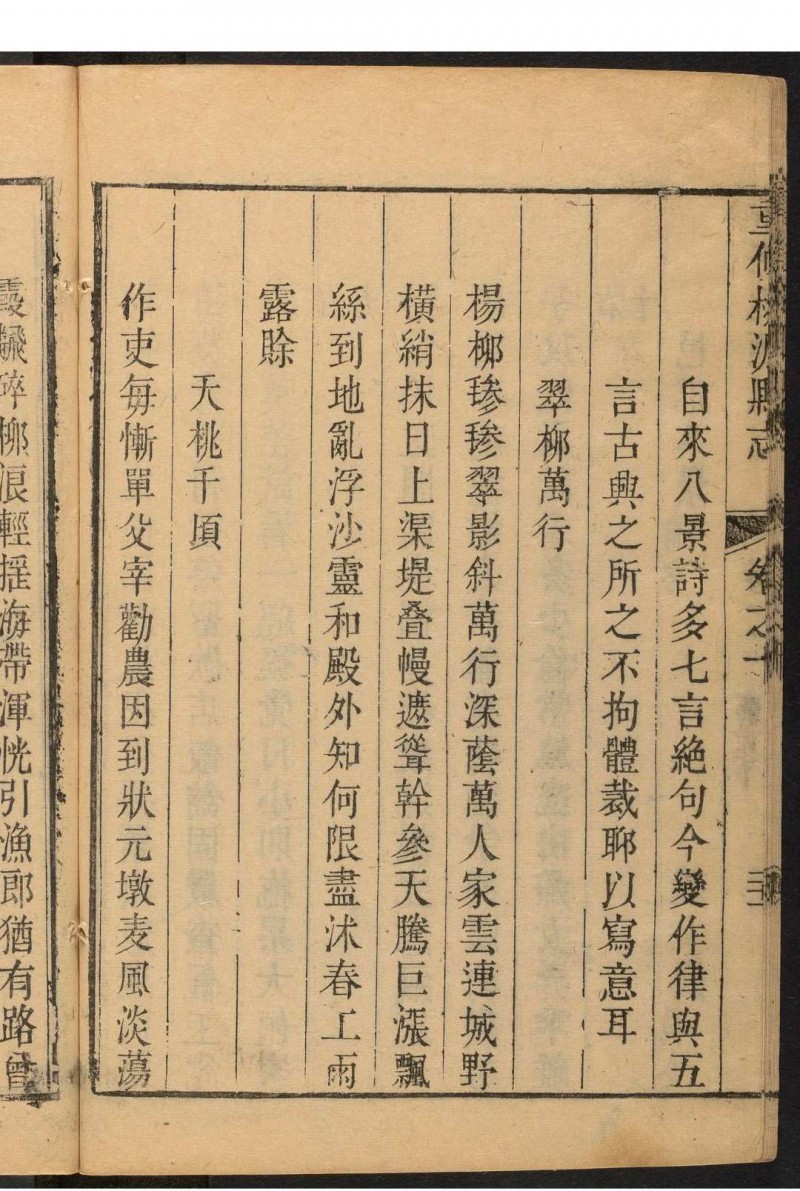 自來八景詩多七言絕句今變作律與五
言古興之所之不拘體裁耶以寫意耳
翠柳萬行
楊柳㣎㣎翠影斜萬行深蔭萬人家雲連城野
橫綃抹日上渠堤叠幔遮聳幹參天騰巨漲飄
絲到地亂浮沙靈和殿外知何限盡沭春工雨
露賒
夭桃千頃
作吏每慚單父宰勸農因到狀元墩麦風淡蕩
碎柳浪輕摇海帶渾恍引漁郎猶有路曾